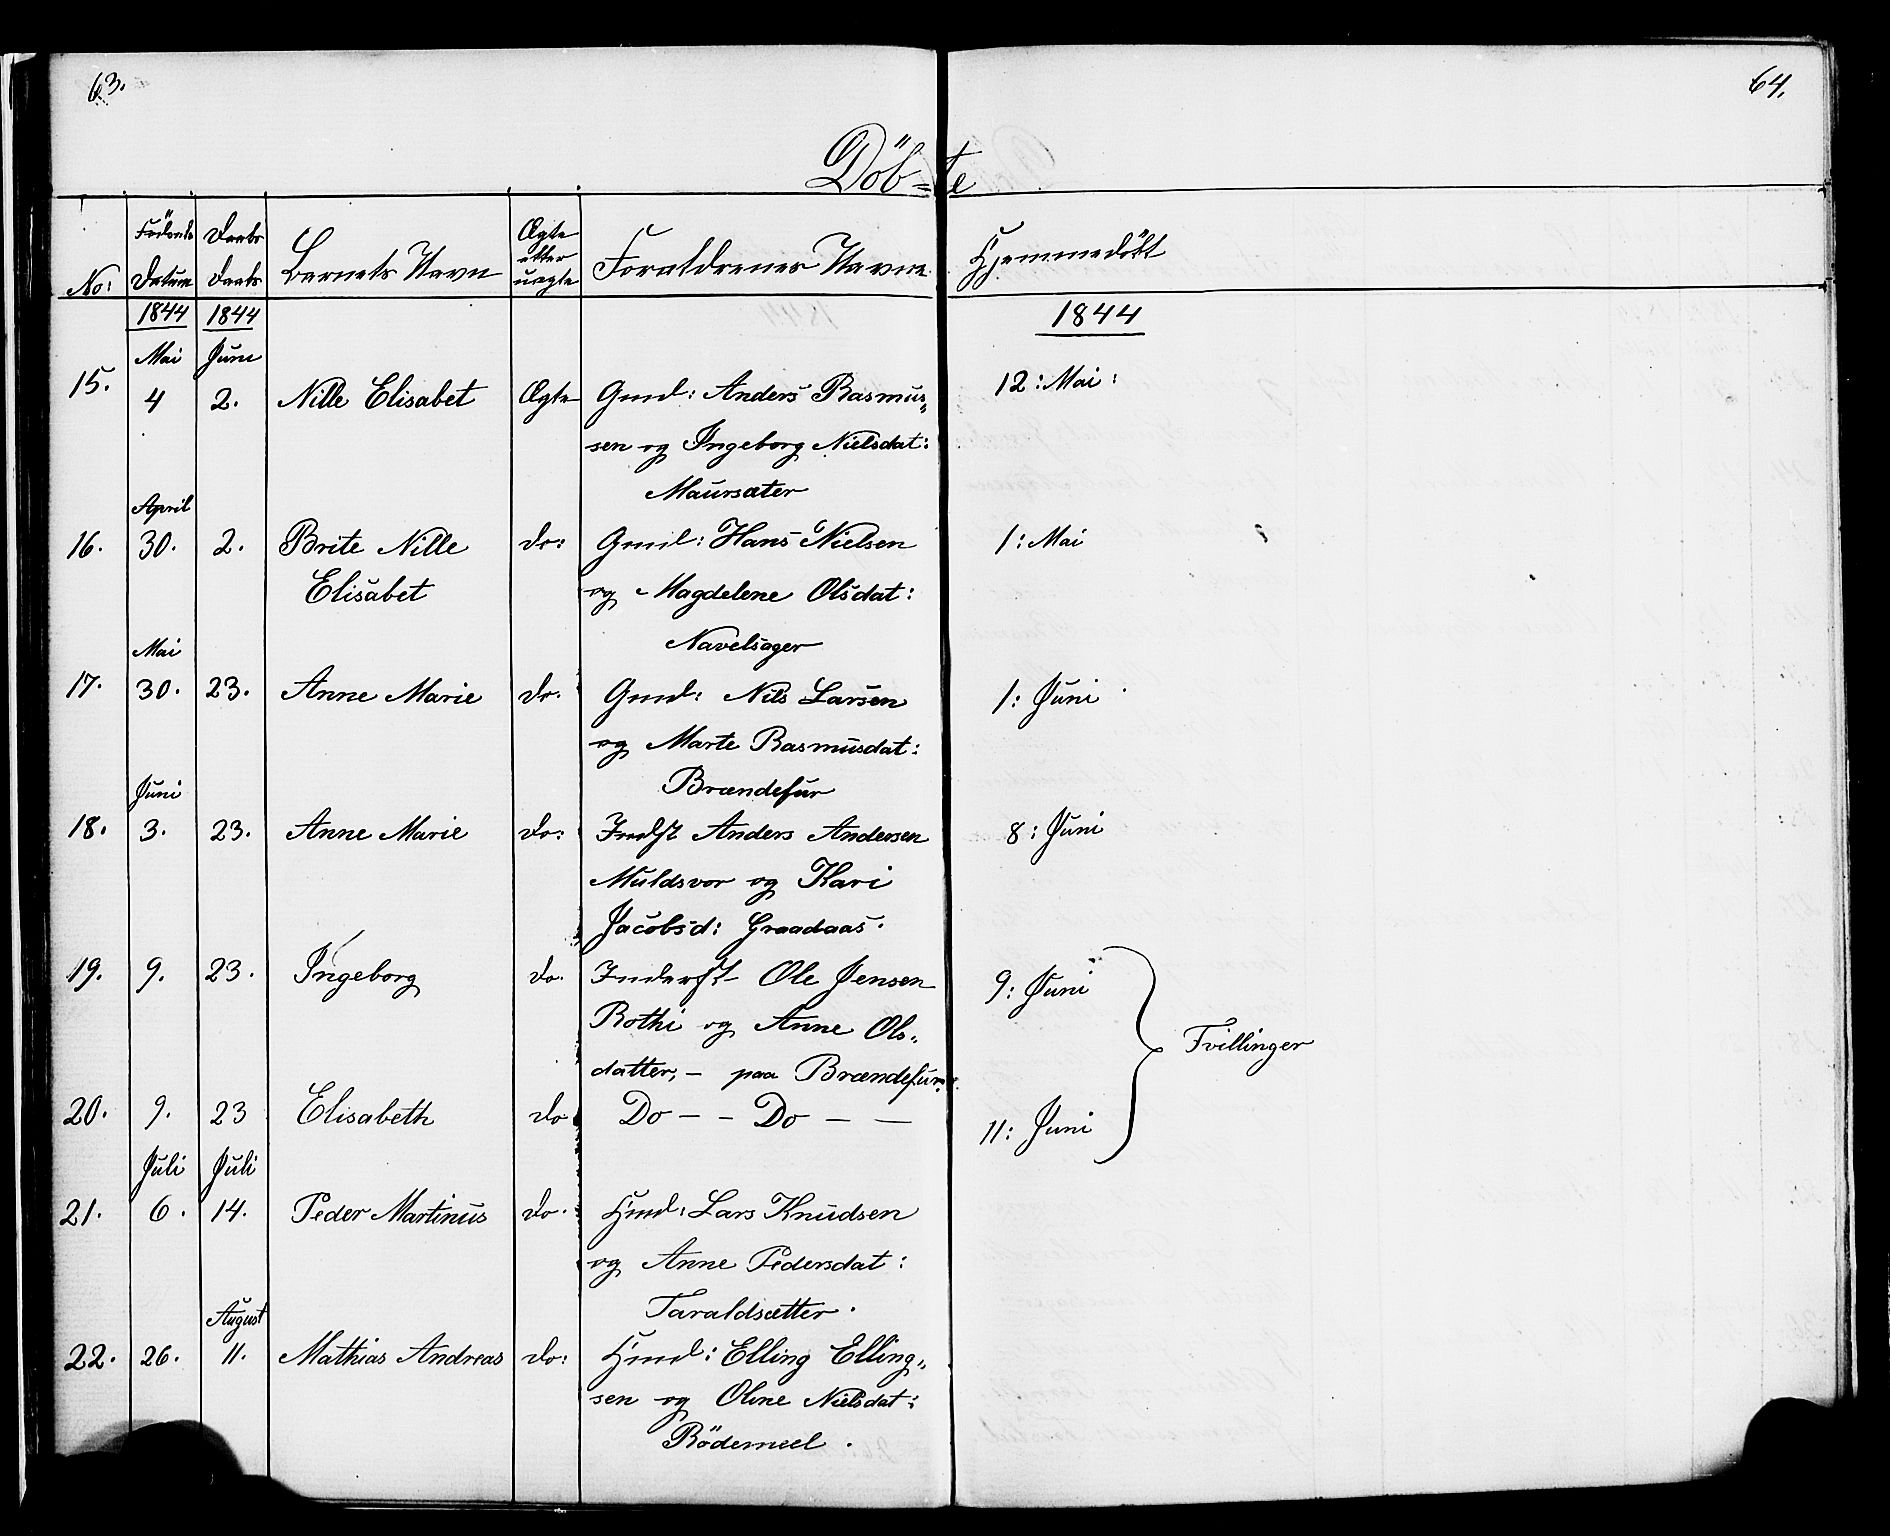 63.
64.
Döb=te
No:
Födsels Datum
Daabs Daato
Barnets Navn
Ægte eller uægte
Forældrenes Navne
Hjemmedöbt
1844 1844 1844
Mai Juni
15. 4 2. Nille Elisabet Ægte Gmd: Anders Rasmus„ 12: Mai:
sen og Ingeborg Nielsdat:
Maursæter
April
16. 30. 2. Brite Nille do: Gmd: Hans Nielsen 1: Mai
Elisabet og Magdelene Olsdat:
Navelsager
Mai
17. 30. 23. Anne Marie do. Gmd: Nils Larsen 1: Juni
og Marte Rasmusdat:
Brændefur
Juni
18. 3. 23. Anne Marie do: Indst Anders Andersen 8: Juni
Muldsvor og Kari
Jacobsd: Graadaas.
19. 9. 23. Ingeborg do. Inderst Ole Jensen 9: Juni
Rothi og Anne Ols„
datter, – paa Brændefur.
Tvillinger
20. 9. 23 Elisabeth do Do – – Do – — 11: Juni
Juli Juli
21. 6. 14. Peder Martinus do. Hmd: Lars Knudsen
og Anne Pedersdat:
Taraldsætter.
August
22. 26. 11. Mathias Andreas do: Hmd: Elling Elling„
sen og Oline Nielsdat:
Rödemeel.